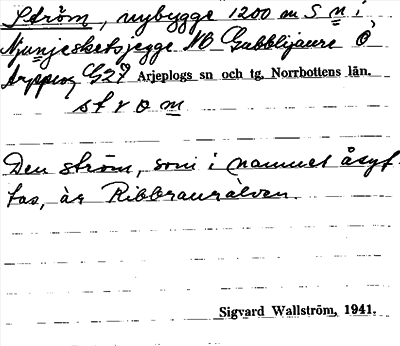 Ström, nybygge 1200 m S n i
Njunjesketsjegge NB Gubblijaure Ö
Arjeplog G27 Arjeplogs sn och tg, Norrbottens län.
strom
Den ström, som i namnet åsyf-
tas, är Ribbraurälven.
Sigvard Wallström, 1941.